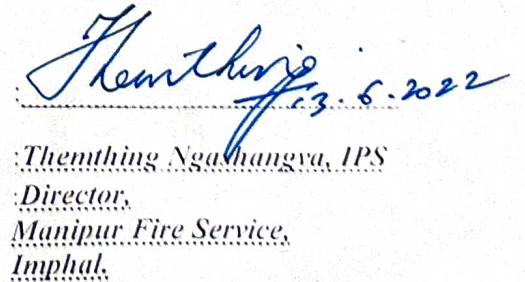 Themthing
13.6.2022
:Themthing Ngashangva, IPS
:Director,
Manipur Fire Service,
Imphal.